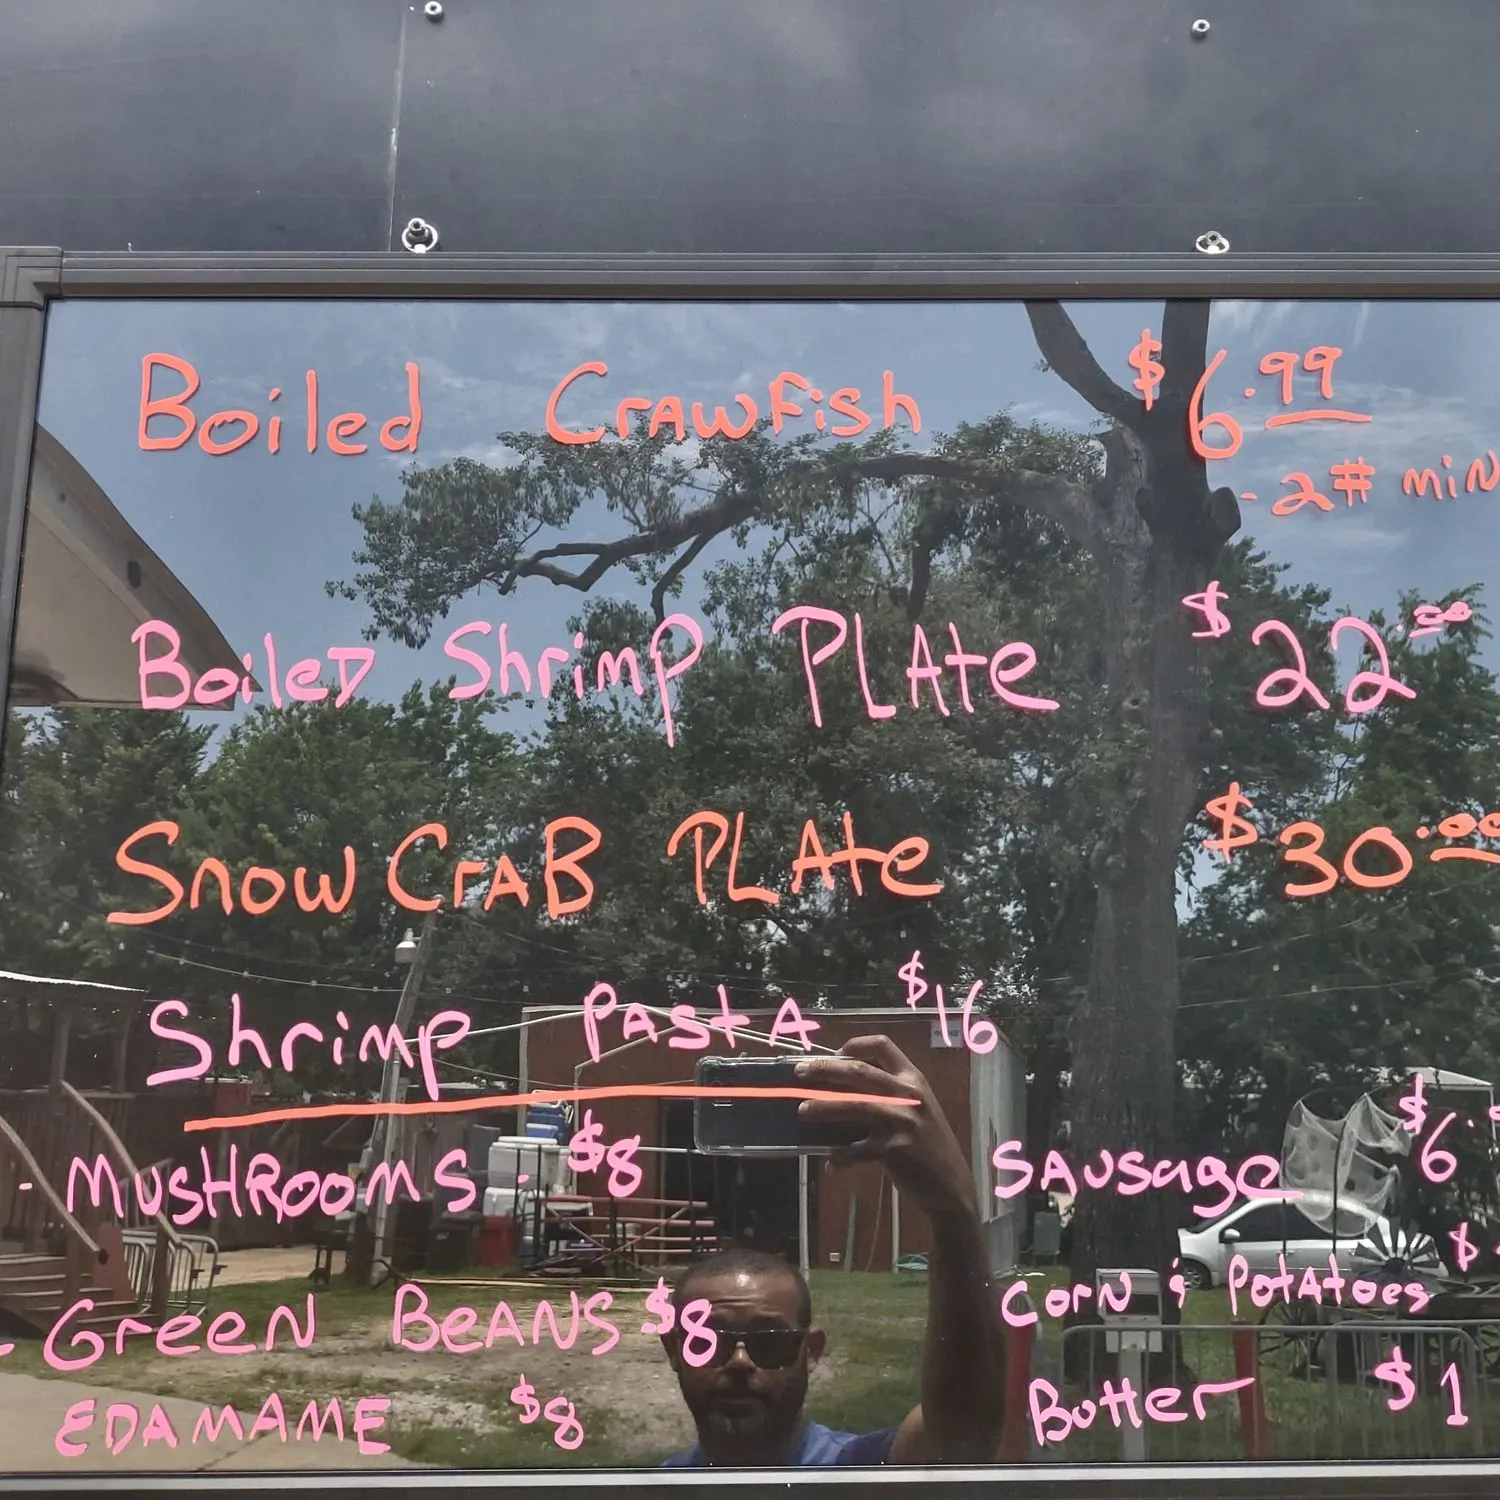 Boiled Crawfish $6.99
-2# min
Boiled Shrimp Plate $22.00
Snow Crab Plate $30.00
Shrimp Pasta $16
- Mushrooms - $8
- Green Beans $8
Edamame $8
Sausage $6.
Corn & Potatoes $
Butter $1